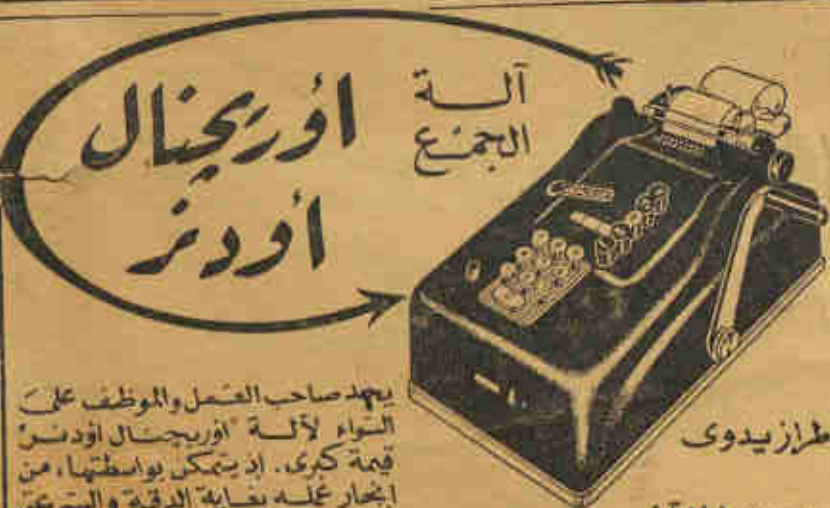 آلة
الجمع
اوريجنال
اودنر
يعهد صاحب العمل والموظف على
السواء لآلة "اوريجنال اودنر"
قيمة كبرى. اذ يتمكن بواسطتها، من
انجاز عمله بغاية الدقة والسرعة
طراز يدوى